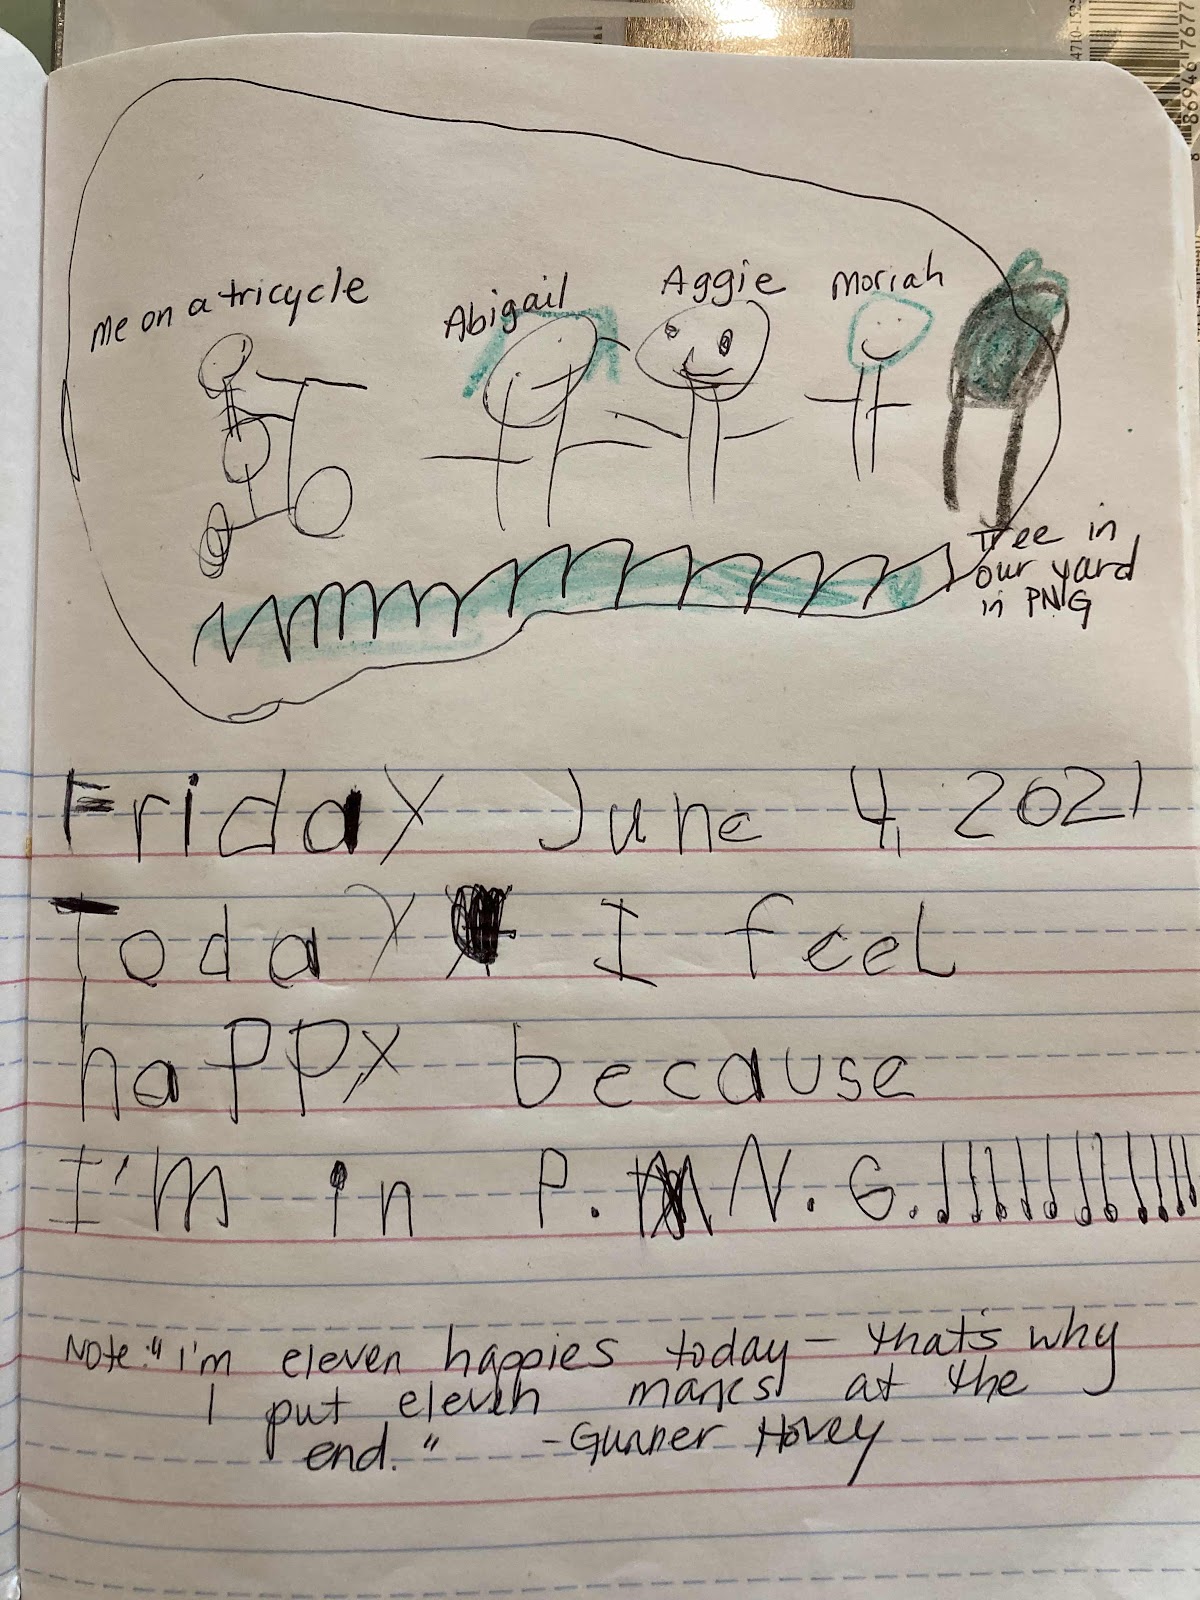 4710-1525
8 86946 17677
me on a tricycle
Abigail
Aggie
Moriah
Tree in
our yard
in PNG
Friday June 4, 2021
Today I feel
happy because
I'm in P. N. G. !!!!!!!!!!!
Note: "I'm eleven happies today – that's why
I put eleven marks at the
end." -Gunner Hovey